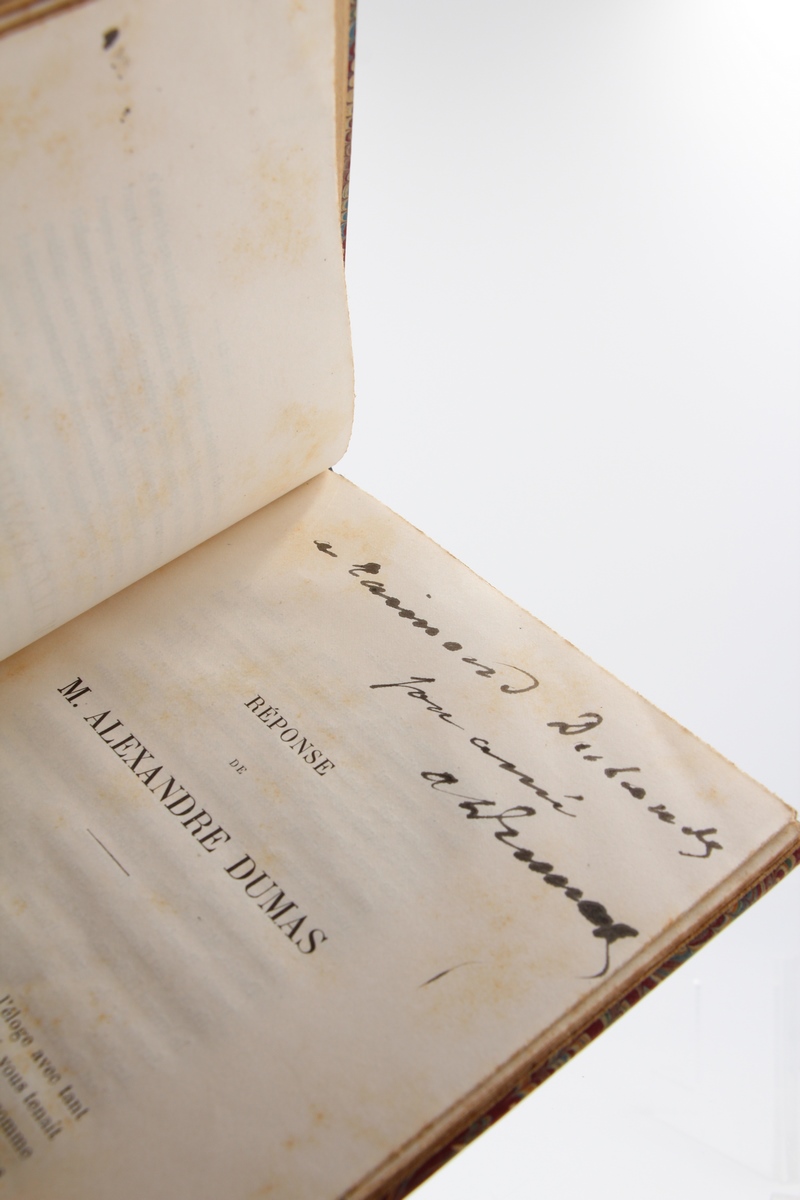 a Raimond Deslandes
son ami
A Dumas
RÉPONSE
DE
M. ALEXANDRE DUMAS
l'éloge avec tant
vous tenait